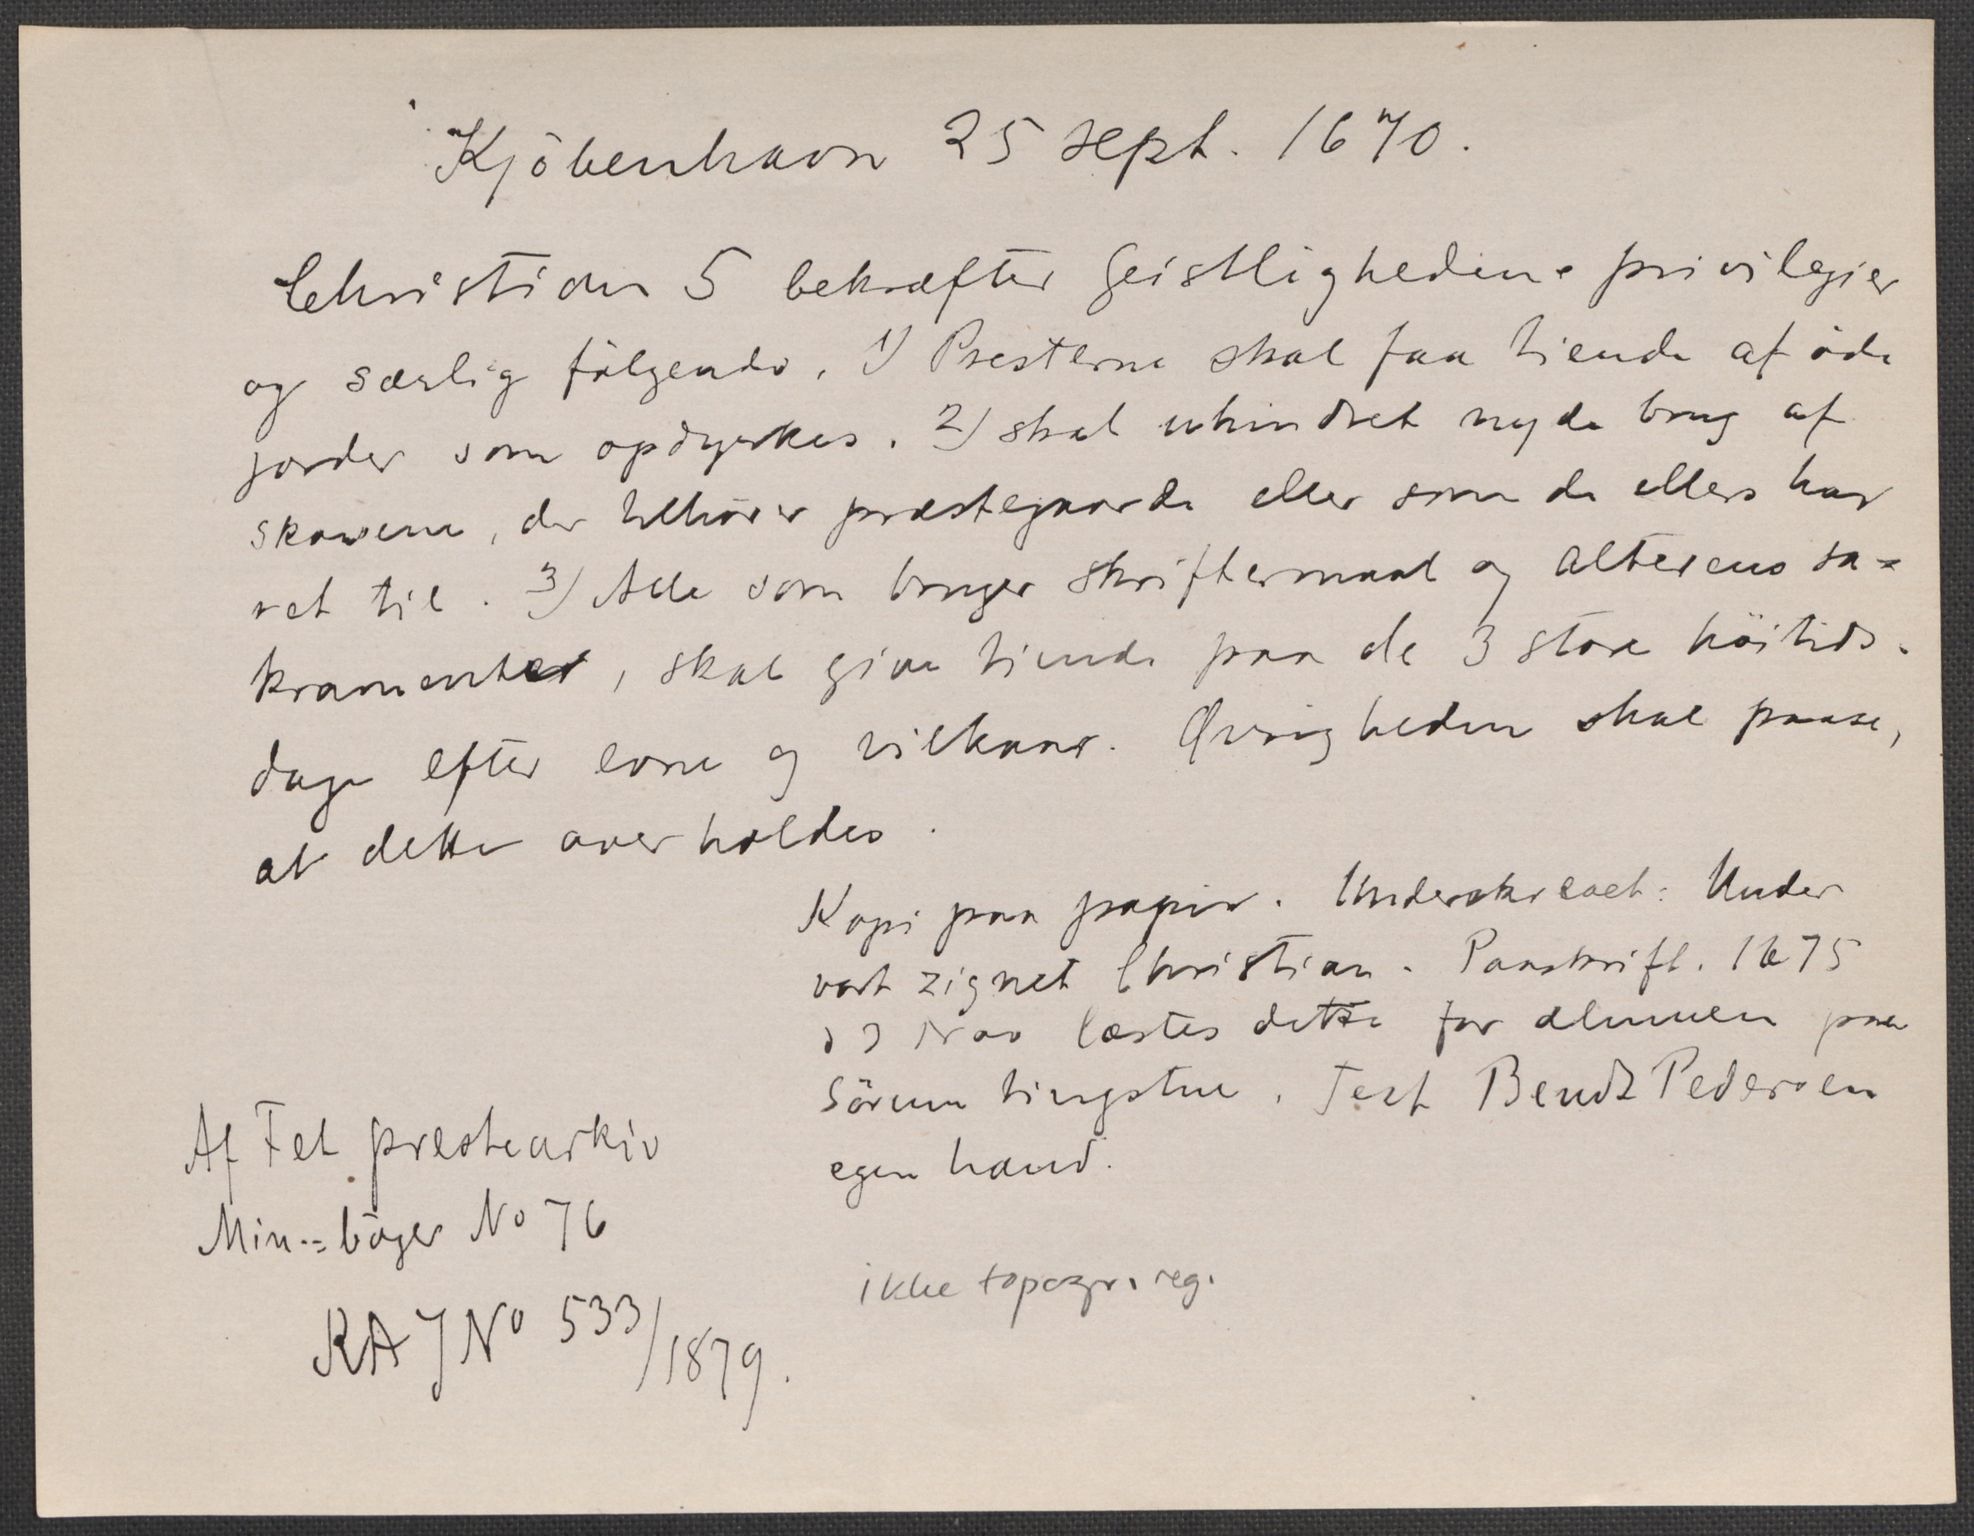 Kjöbenhavn 25 sept. 1670.
Christian 5 bekræfter Geistlighedens privilegier
og særlig fölgende, 1) Presterne skal faa tiende af öde
jorder som opdyrkes. 2) skal uhindret nyde brug af
skovene, der tilhörer præstegaarde eller som de ellers har
ret til. 3) Alle som bruger skriftermaal og alterens sa=
kramenter, skal give tiende paa de 3 store höitids-
dage efter evne og vilkaar. Øvrigheden skal paase,
at dette overholdes.
Kopi paa papir. Underskrevet: Under
vort zignet Christian. Paaskrift. 1675
Nov læstes dette for almuen paa
Sörum tingstue. Test Bendt Pedersen
egen haand.
Af Fet prestearkiv
Min.=böger No 76
RA JNo 533/1879.
ikke topogr. reg.